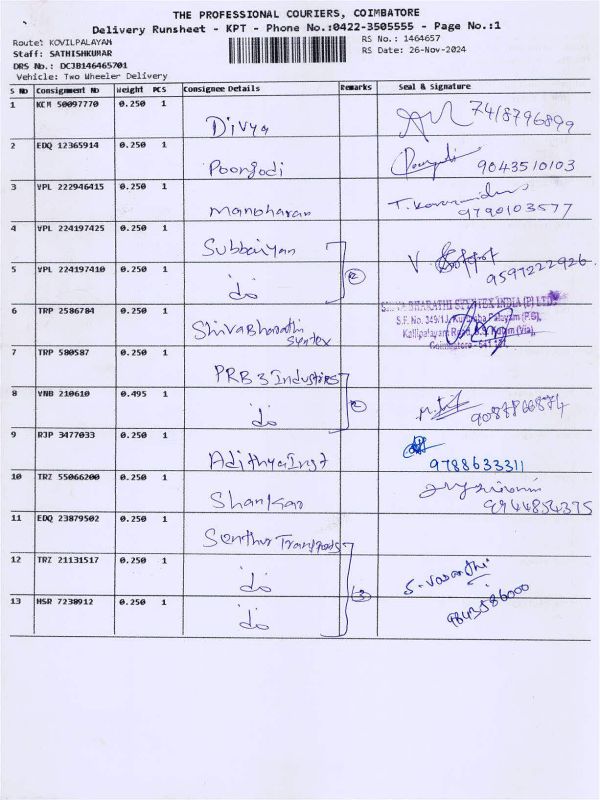 THE PROFESSIONAL COURIERS, COIMBATORE
Delivery Runsheet - KPT - Phone No.:0422-3505555 - Page No.:1
Route: KOVILPALAYAM
RS No.: 1464657
Staff: SATHISHKUMAR
RS Date: 26-Nov-2024
DRS No.: DCJB146465701
Vehicle: Two Wheeler Delivery
S No Consignment No Weight PCS Consignee Details Remarks Seal & Signature
1 KCM 50097770 0.250 1 Divya 7418796899
2 EDQ 12365914 0.250 1 Poongodi 9043510103
3 VPL 222946415 0.250 1 Manoharan T. 9790103577
4 VPL 224197425 0.250 1 Subbaiyan V.
5 VPL 224197410 0.250 1 do 2 9597222926
6 TRP 2586784 0.250 1 ShivaBharathi Syntex
SHIVA BHARATHI SYNTEX INDIA (P) LTD
S.F. No. 349/1J, Kurumba Palayam (P.O),
Kallipalayam Road, (Via),
Coimbatore - 641
7 TRP 580587 0.250 1 PRB 3 Industries
8 VNB 210610 0.495 1 do 2
9 RJP 3477033 0.250 1 Adithya Inst 9788633311
10 TRZ 55066200 0.250 1 Shankar 9944854375
11 EDQ 23879502 0.250 1 Senthur Transports
12 TRZ 21131517 0.250 1 do 3 S. Vasanthi
13 HSR 7238912 0.250 1 do 9843586000